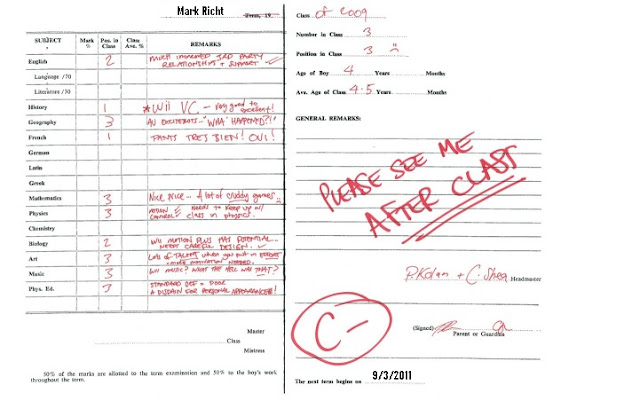 Mark Richt
Form, 19
SUBJECT
Mark %
Pos. in Class
Class Ave. %
REMARKS
English 2 MUCH IMPROVED 3RD PARTY RELATIONSHIPS + SUPPORT
Language /70
Literature /30
History 1 *Wii VC - very good to excellent!
Geography 3 AU EXCITEBOTS.. "WHA' HAPPENED?!"
French 1 PANTS TRES BIEN! OUI!
German
Latin
Greek
Mathematics 3 Nice price... A lot of cruddy games...
Physics 3 NEEDS to keep up w/ class in physics.
Chemistry
Biology 2 WII MOTION PLUS HAS POTENTIAL... NEEDS CAREFUL DESIGN.
Art 3 Lots of TALENT when you put in EFFORT - MORE MOTIVATION NEEDED.
Music 3 WII MUSIC? WHAT THE HELL WAS THAT?
Phys. Ed. 3 STANDARD DEF = POOR
A DISDAIN FOR PERSONAL APPEARANCES!
Master
Class
Mistress
50% of the marks are allotted to the term examination and 50% to the boy's work
throughout the term.
Class of 2009
Number in Class 3
Position in Class 3
Age of Boy 4 Years Months
Ave. Age of Class 4.5 Years Months
GENERAL REMARKS:
PLEASE SEE ME
AFTER CLASS
P.Kolan + C.Shea Headmaster
C-
(Signed)
Parent or Guardian
The next term begins on 9/3/2011